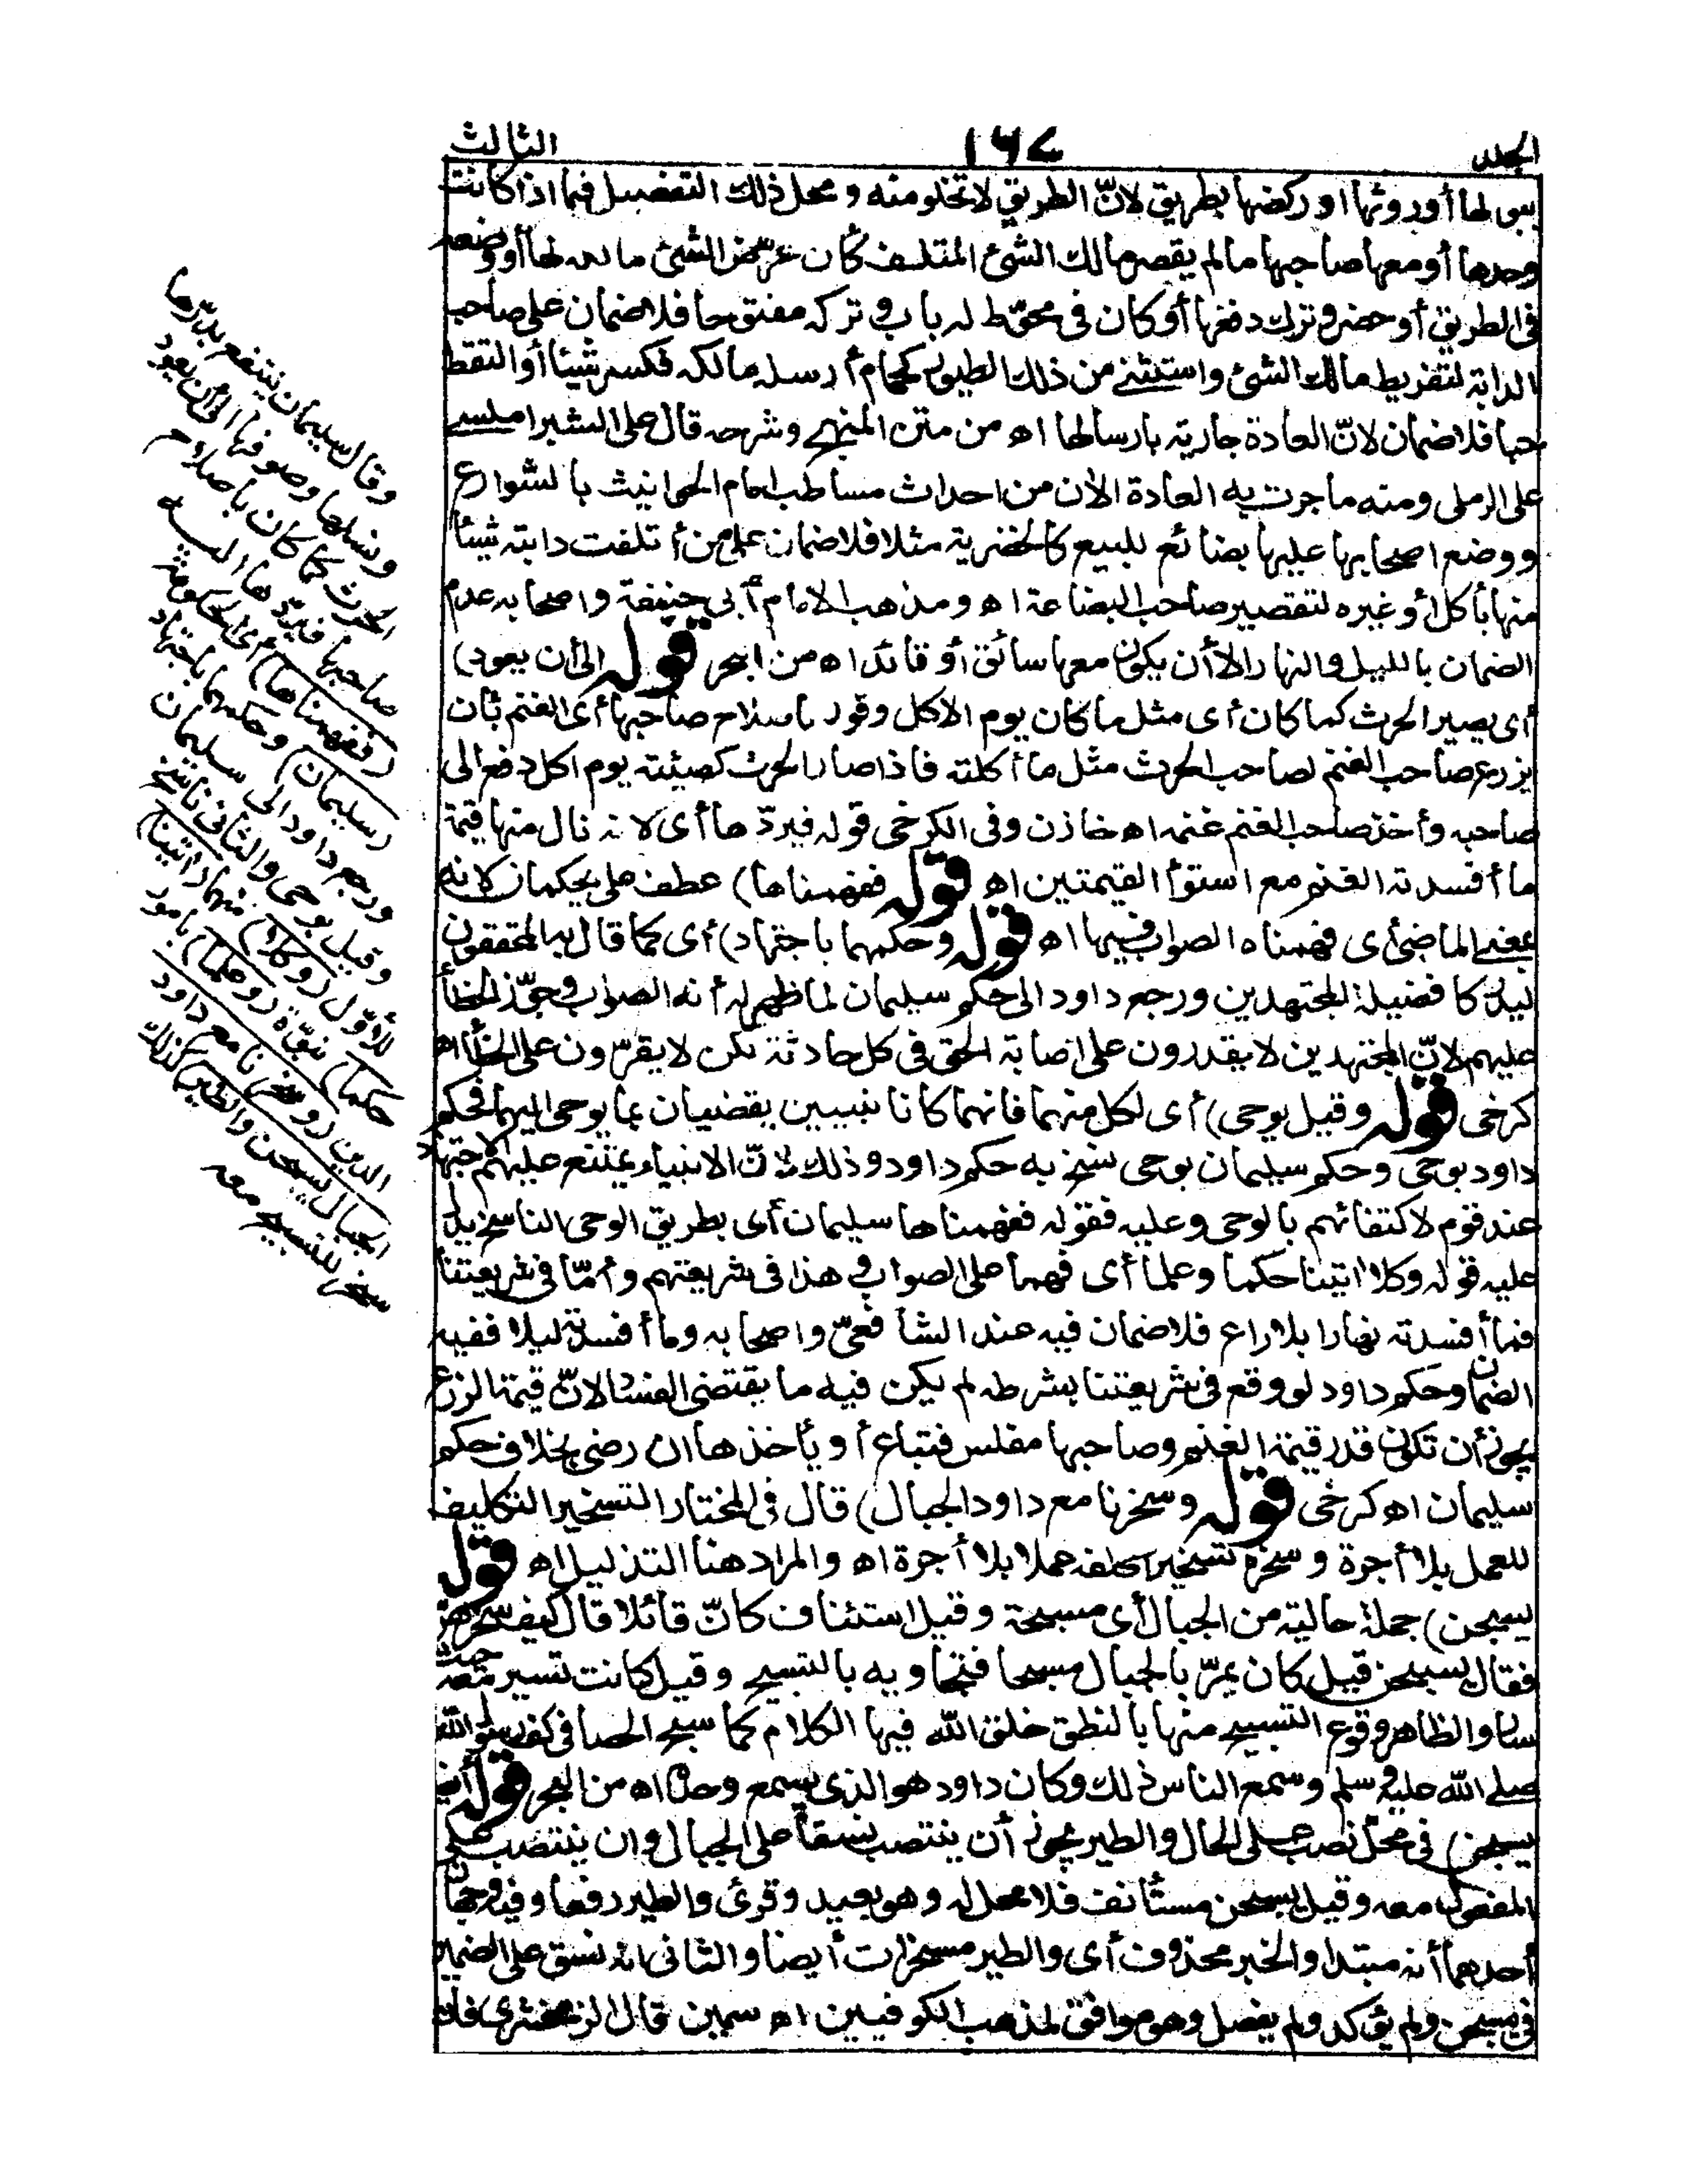 الجلد ١٦٧ الثالث
ببولها أو روثها او ركضها بطريق لانّ الطريق لا تخلو منه و محل ذلك التفصيل فيما اذا كانت
وحدها أو معها صاحبها ما لم يقصر مالك الشئ المتلف كأن عرّض الشئ مالكه لها أو وضعه
فى الطريق أو حضر و ترك دفعها أو كان فى محوّط له باب و تركه مفتوحا فلا ضمان على صاحب
الدابة لتفريط مالك الشئ و استثنى من ذلك الطيور كحمام أرسله مالكه فكسر شيئا أو التقط
حبا فلا ضمان لانّ العادة جارية بارسالها اه من متن المنهج و شرحه قال على الشبراملسى
على الرملى ومنه ما جرت به العادة الآن من احداث مساطب امام الحوانيت بالشوارع
و وضع اصحابها عليها بضائع للبيع كالخضرية مثلا فلا ضمان على من أتلفت دابته شيئا
منها بأكل أو غيره لتقصير صاحب البضاعة اه و مذهب الامام أبى حنيفة و اصحابه عدم
الضمان بالليل والنهار الا أن يكون معها سائق أو قائد اه من البحر قوله الى أن يعود)
أى يصير الحرث كما كان أى مثل ما كان يوم الاكل وقوله باصلاح صاحبها أى الغنم بأن
يزرع صاحب الغنم لصاحب الحرث مثل ما أكلته فاذا صار الحرث كهيئته يوم اكل دفع الى
صاحبه وأخذ صاحب الغنم غنمه اه خازن وفى الكرخى قوله فيردّها أى لانه نال منها قيمة
ما أفسدته الغنم مع استوأ القيمتين اه قوله ففهمناها) عطف على يحكمان لانه
بمعنى الماضى أى فهمناه الصواب فيها اه قوله وحكمهما باجتهاد) أى كما قال به المحققون
ليدركا فضيلة المجتهدين ورجع داود الى حكم سليمان لما ظهر له أنه الصواب وجوّز الخطأ
عليهم لانّ المجتهدين لا يقدرون على اصابة الحق فى كل حادثة لكن لا يقرّون على الخطأ اه
كرخى قوله وقيل بوحى) أى لكل منهما فانهما كانا نبيين يقضيان بما يوحى اليهما فحكم
داود بوحى وحكم سليمان بوحى نسخ به حكم داود وذلك لانّ الانبياء يمتنع عليهم الاجتهاد
عند قوم لاكتفائهم بالوحى وعليه فقوله ففهمناها سليمان أى بطريق الوحى الناسخ يدل
عليه قوله وكلا اتينا حكما وعلما أى فهما على الصواب و هذا فى شريعتهم وأمّا فى شريعتنا
فما أفسدته نهارا بلا راع فلا ضمان فيه عند الشافعىّ و اصحابه وما أفسدته ليلا ففيه
الضمان وحكم داود لو وقع فى شريعتنا بشرطه لم يكن فيه ما يقتضى الفساد لانّ قيمة الزرع
يجوز أن تكون قدر قيمة الغنم وصاحبها مفلس فتباع أو يأخذها ان رضى بخلاف حكم
سليمان اه كرخى قوله وسخرنا مع داود الجبال) قال فى المختار التسخير التكليف
للعمل بلا أجرة و سخره تسخيرا كلفه عملا بلا أجرة اه والمراد هنا التذليل اه قوله
يسبحن) جملة حالية من الجبال أى مسبحة و قيل استئناف كانّ قائلا قال كيف سخرهنّ
فقال يسبحن قيل كان يمرّ بالجبال مسبحا فتجاوبه بالتسبيح و قيل كانت تسير معه حيث
سار والظاهر وقوع التسبيح منها بالنطق خلق الله فيها الكلام كما سبح الحصا فى كف رسول الله
صلى الله عليه و سلم و سمع الناس ذلك وكان داود هو الذى يسمع وحده اه من البحر قوله أيضا
يسبحن) فى محل نصب على الحال والطير يجوز أن ينتصب نسقا على الجبال و ان ينتصب على
المفعول معه وقيل يسبحن مستأنف فلا محل له وهو بعيد و قرئ والطير رفعا و فيه وجهان
أحدهما أنه مبتدا والخبر محذوف أى والطير مسخرات أيضا و الثانى انه نسق على الضمير
فى يسبحن ولم يؤكد ولم يفصل وهو موافق لمذهب الكوفيين اه سمين قال الزمخشرى فان
وقال سليمان ينتفع بدرّها
ونسلها وصوفها الى أن يعود
الحرث كما كان باصلاح
صاحبها فيردّها اليه
(ففهمناها) أى الحكومة
(سليمان) وحكمهما باجتهاد
ورجع داود الى سليمان
وقيل بوحى والثانى ناسخ
للأوّل (وكلا) منهما (اتينا)
حكما) نبوّة (وعلما) بامور
الدين (وسخرنا مع داود
الجبال يسبحن والطير) كذلك
سخر للتسبيح معه